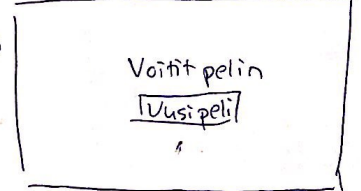 Voitit pelin
Uusi peli